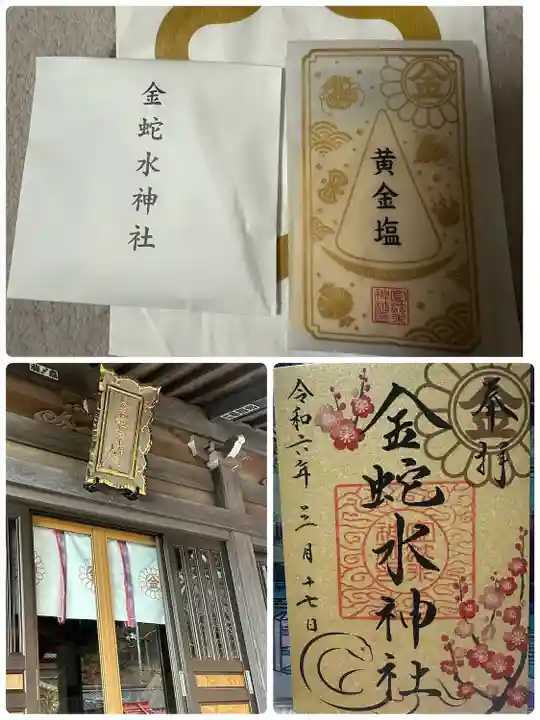 金蛇水神社
金
黄金塩
奉拝
金
金蛇水神社
令和六年 三月十七日